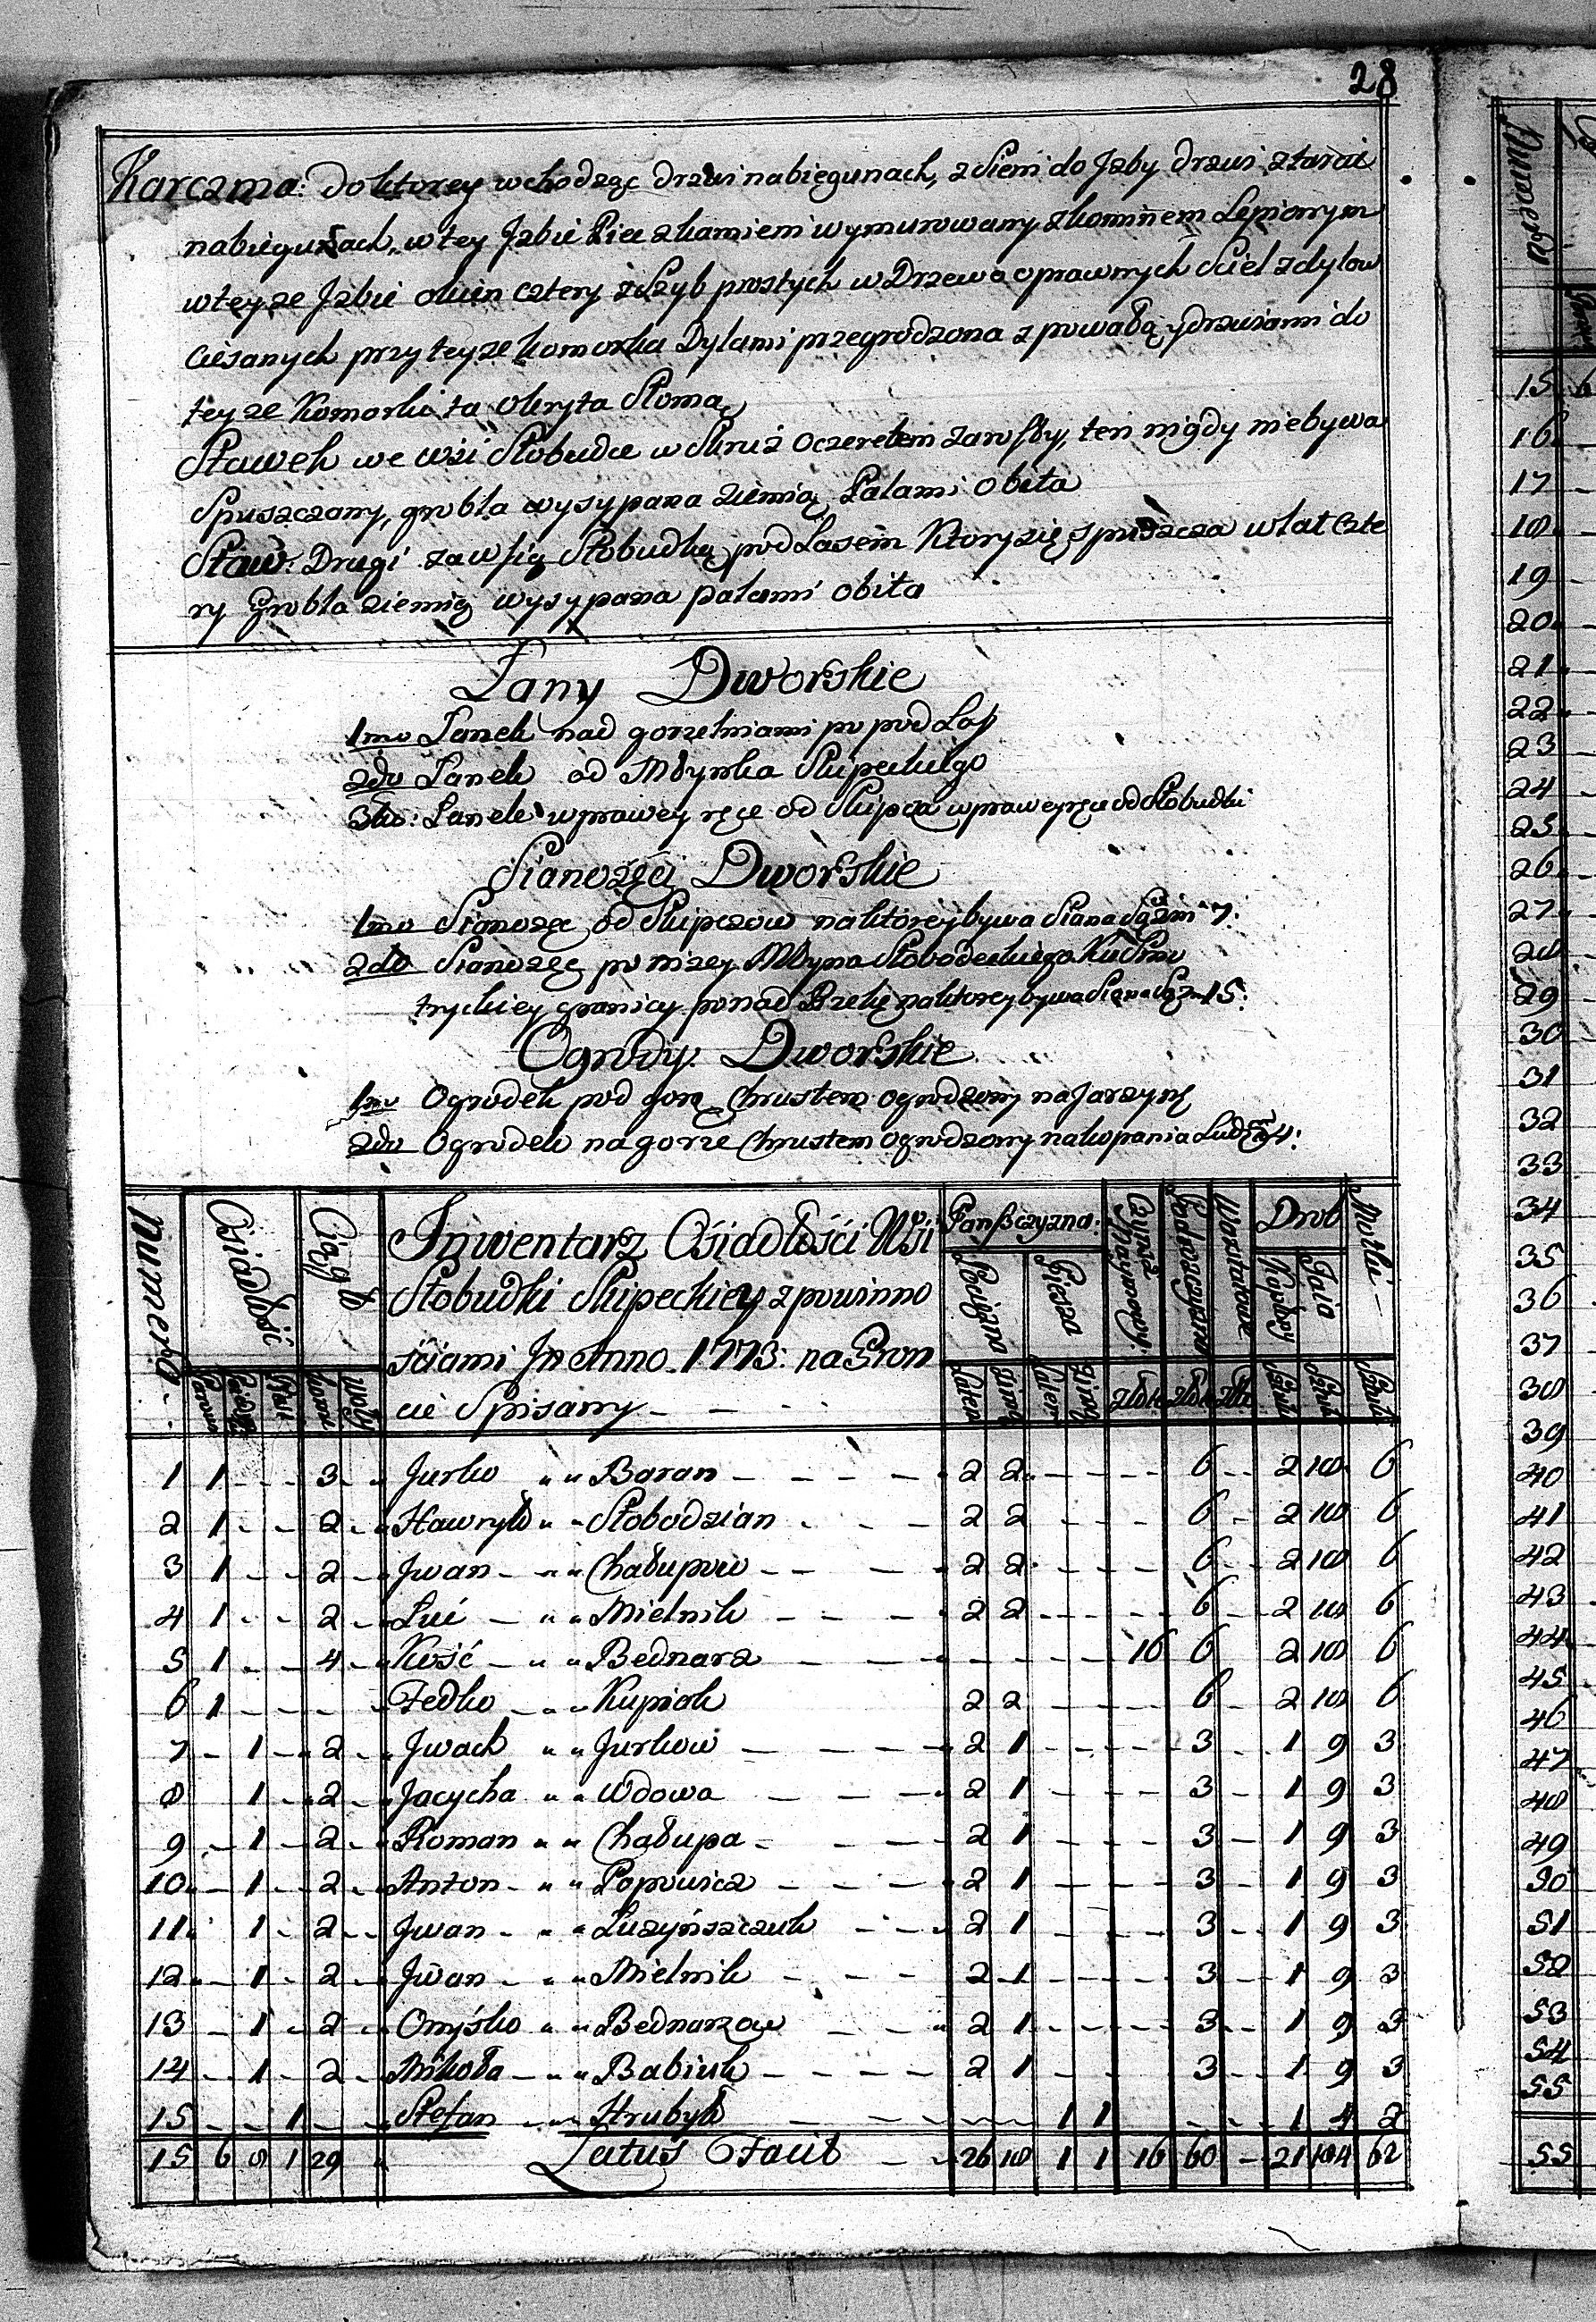 28
Karczma: do ktorey wchodząc drzwi nabiegunach, z Sieni do Jzby drzwi z tarcic
nabiegunach, w tey Jzbie Piec z kamieni wymurowany z kominem Lepionym
w teyze Jzbie okien cztery z Szyb prostych w Drzewo oprawnych Sciel z dylow
ciesanych przy teyze komorka Dylami przegrodzona z powałą y drzwiami do
teyze Komorki ta okryta Słomą
Stawek we wsi Słobudce w Skruż Oczeretem zarosły, ten nigdy niebywa
Spuszczany, grobla wysypana ziemią Palami obita
Staw: Drugi za wsią Słobudką pod Lasem Ktory się spuszcza w lat czte
ry Grobla ziemią wysypana palami obita
Łany Dworskie
1mo Łanek nad gorzelniami po pod Las
2do Łanek od Młynka Słupeckiego
3tio: Łanek w prawey ręce od Słupcza w prawey ręce od Słobudki
Sianożęci Dworskie
1mo Sianożęc od Słupczow na ktorey bywa Siana Sążni 7:
2do Sianożęc ponizey Młyna Słobodeckiego Ku Dmi
tryckiey granicy ponad Rzekę na ktorey bywa Siana Sąż: 15:
Ogrody Dworskie
1mo Ogrodek pod gorą Chrustem ogrodzony na Jarzynę
2do Ogrodek na gorze Chrustem ogrodzony na kopania Ludzi 4:
Numero Osiadłość Ciągło Jnwentarz Osiadłości Wsi Pańszczyzna: Czynsz Drob Motki
Słobudki Słupeckiey z powinno Ciągła Piesza Kapłony Jaia
sciami Jn Anno 1773: na Gron
cie Spisany Latem Zimą Latem Zimą Złote Złote Złote
1 1 3 Jurko Baran 2 2 6 2 18 6
2 1 2 Hawryło Słobodzian 2 2 6 2 18 6
3 1 2 Jwan Chałupow 2 2 6 2 18 6
4 1 2 Luć Mielnik 2 2 6 2 18 6
5 1 4 Kość Bednarz 16 6 2 18 6
6 1 Fedko Kupiak 2 2 6 2 18 6
7 1 2 Jwach Jurkow 2 1 3 1 9 3
8 1 2 Jacycha Wdowa 2 1 3 1 9 3
9 1 2 Roman Chałupa 2 1 3 1 9 3
10 1 2 Anton Popowicz 2 1 3 1 9 3
11 1 2 Jwan Luzyńszczuk 2 1 3 1 9 3
12 1 2 Jwan Mielnik 2 1 3 1 9 3
13 1 2 Omyśko Bednarzow 2 1 3 1 9 3
14 1 2 Mikoła Babiuk 2 1 3 1 9 3
15 1 Stefan Hrubyło 1 1 1 4 2
15 6 8 1 29 Latus Facit 26 18 1 1 16 60 21 184 62
Numero
15
16
17
18
19
20
21
22
23
24
25
26
27
28
29
30
31
32
33
34
35
36
37
38
39
40
41
42
43
44
45
46
47
48
49
50
51
52
53
54
55
55